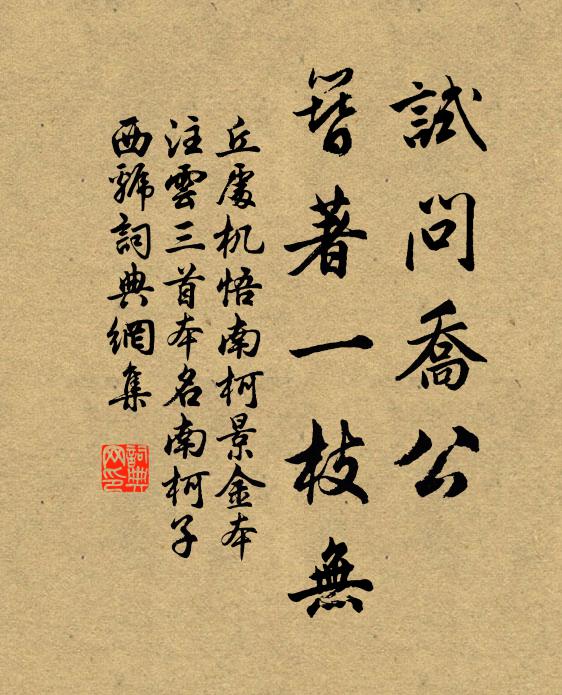 試問喬公
簪著一枝無
丘處机悟南柯景金本
注雲三首本名南柯子
西號詞典網集
詞典网印